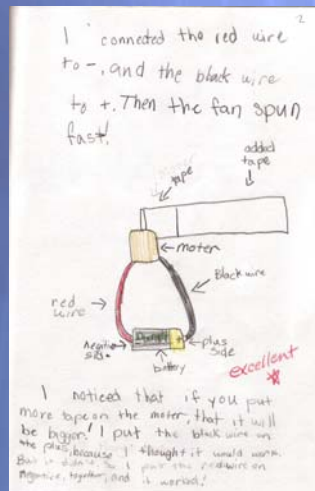 2
I connected the red wire
to -, and the black wire
to +. Then the fan spun
fast!
added
tape
tape
moter
Black wire
red
wire
negitive
side
plus
side
battery
excellent
I noticed that if you put
more tape on the moter, that it will
be bigger! I put the black wire on
the plus, because I thought it would work.
But it didn't, so I put the red wire on
negitive, together, and it worked!